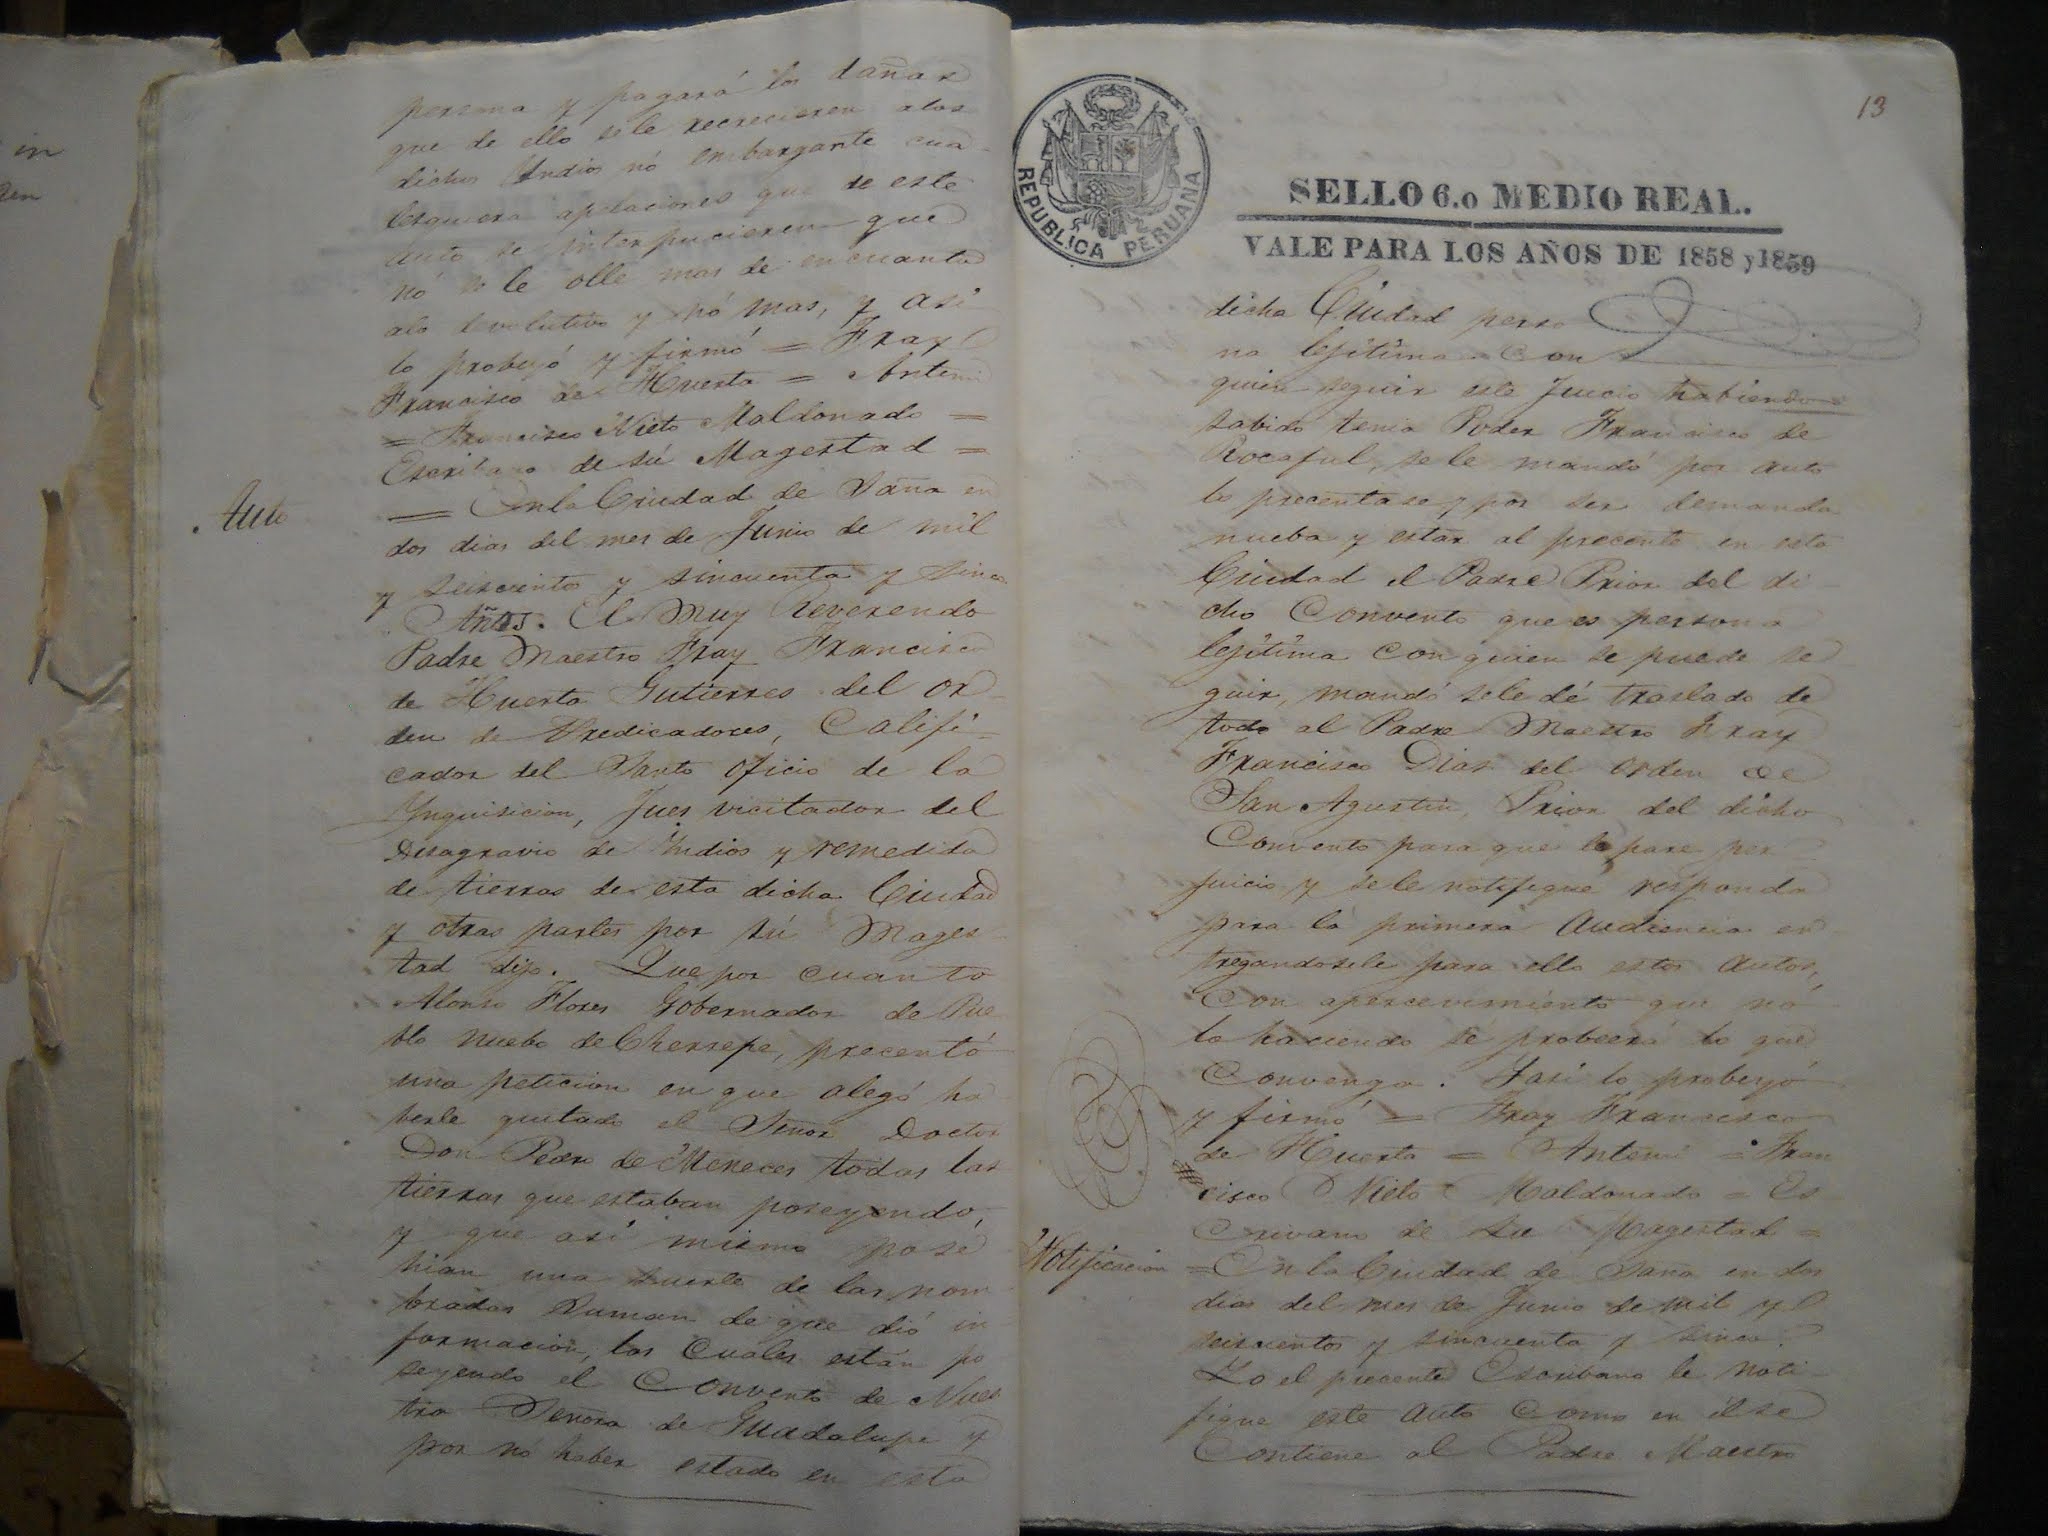 in
persona y pagará los daños
que de ello se le recrecieren a los
dichos Indios nó embargante cua-
lesquiera apelaciones que de este
auto se interpucieren que
nó se le olle mas de en cuanto
alo devolutivo y nó mas, y asi
lo probeyó y firmó = Fray
Francisco de Huerta = Antemi
= Francisco Nieto Maldonado =
Escribano de sú Magestad =
Auto
= En la Ciudad de Saña en
dos dias del mes de Junio de mil
y seiscientos y sincuenta y sinco
Años. El Muy Reverendo
Padre Maestro Fray Francisco
de Huerta Gutierres del or-
den de Predicadores, Califi-
cador del Santo oficio de la
Ynquisicion, Jues vicitador del
Desagravio de Yndios y remedida
de tierras de esta dicha Ciudad
y otras partes por sú Mages-
tad dijo. Que por cuanto
Alonso Flores Gobernador de Pue-
blo nuebo de Cherrepe, precentó
una peticion en que alegó ha-
berle quitado el Señor Doctor
Don Pedro de Meneces todas las
tierras que estaban poseyendo,
y que asi mismo posé
hian una suerte de las nom-
bradas Suman de que dió in-
formacion, las cuales están po
seyendo el Convento de Nues-
tra Señora de Guadalupe y
por nó haber estado en esta
13
REPUBLICA PERUANA
SELLO 6.o MEDIO REAL.
VALE PARA LOS AÑOS DE 1858 y 1859
dicha Ciudad perso
na lejitima con
quien seguir este Juicio habiendo
sabido tenia Poder Francisco de
Rocaful, se le mandó por auto
lo precentase y por ser demanda
nueba y estar al precente en esta
Ciudad el Padre Prior del di-
cho Convento que es persona
lejitima con quien se puede se
guir, mandó se le dé traslado de
todo al Padre Maestro Fray
Francisco Dias del orden de
San Agustin, Prior del dicho
Convento para que le pare per-
juicio y se le notifique responda
para la primera Audiencia en
tregandosele para ello estos autos,
con apercevimiento que nó
lo haciendo se probeerá lo que
convenga. Y asi lo probeyó
y firmó = Fray Francisco
de Huerta = Antemi = Fran
cisco Nieto Maldonado = Es
crivano de Su Magestad =
Notificacion
= En la Ciudad de Saña en dos
dias del mes de Junio de mil y
seiscientos y sincuenta y sinco.
Yo el precente Escribano le noti-
fique este auto como en él se
contiene al Padre Maestro